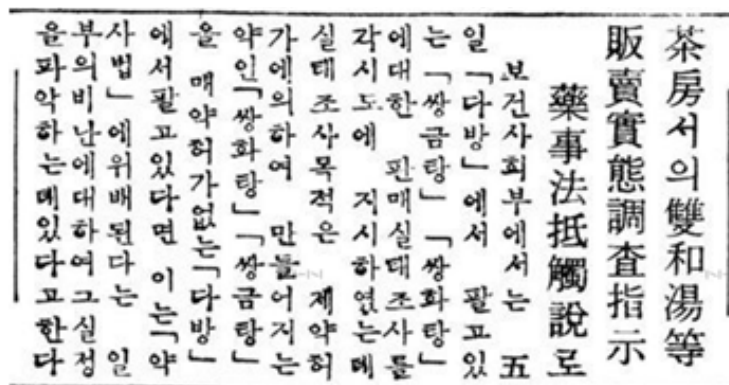 茶房서의雙和湯等
販賣實態調査指示
藥事法抵觸說로
보건사회부에서는 五
일「다방」에서 팔고있
는「쌍금탕」「쌍화탕」
에대한 판매실태조사를
각시도에 지시하였는데
실태조사목적은 제약허
가에의하여 만들어지는
약인「쌍화탕」「쌍금탕」
을 매약허가없는「다방」
에서팔고있다면 이는「약
사법」에위배된다는 일
부의비난에대하여그실정
을파악하는데있다고한다